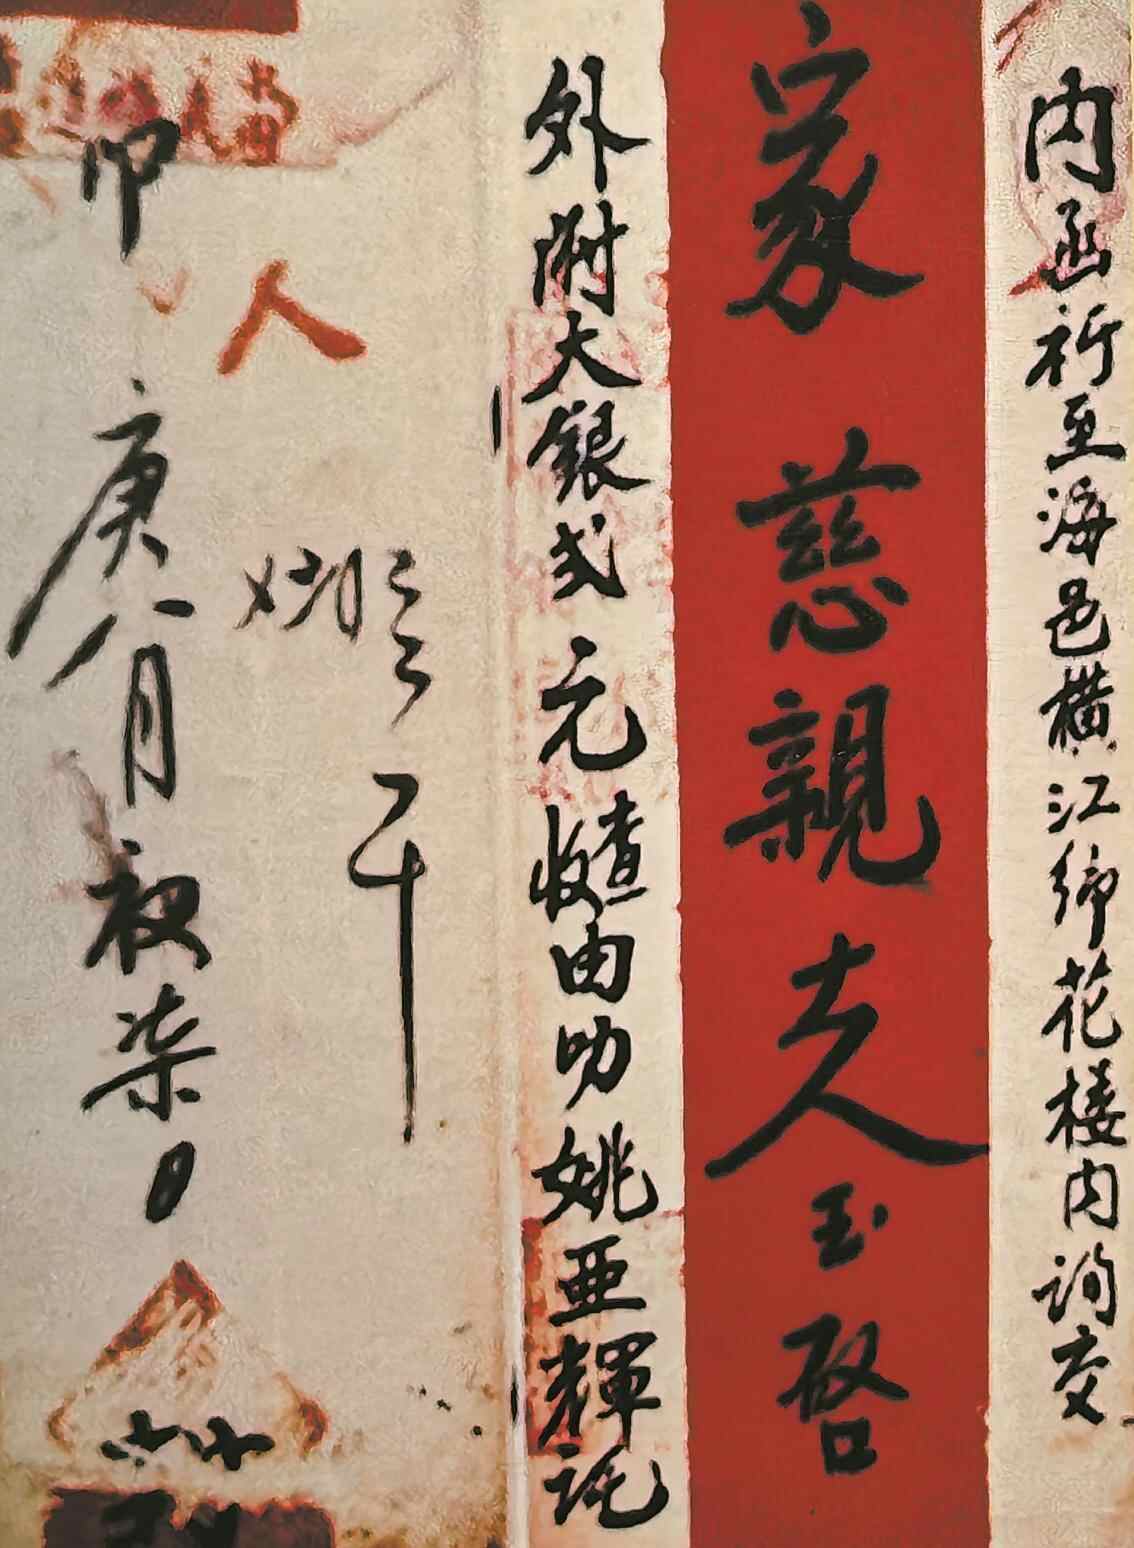 内函祈至海邑横江鄉花楼内詢交
家慈親夫人玉啓
外附大銀弍元查收由叻姚亞輝託
庚八月初柒日